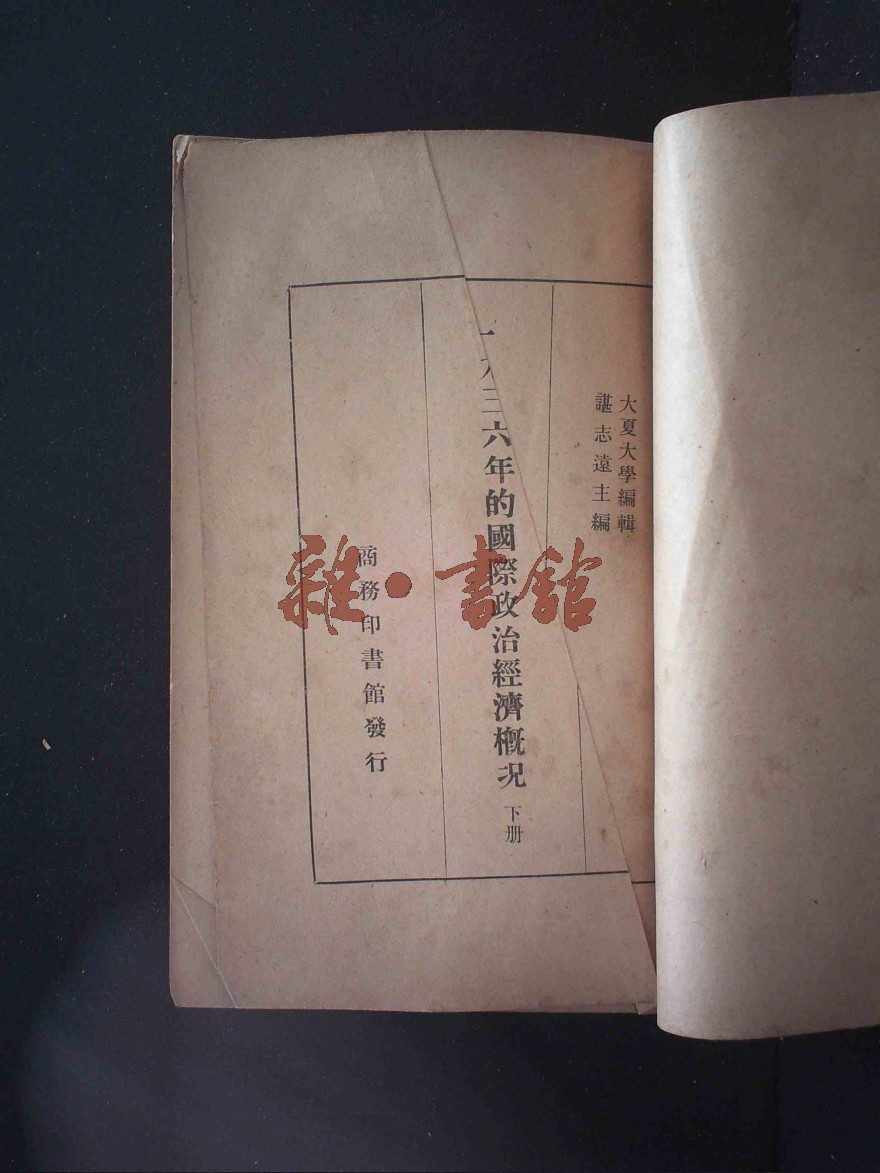 大夏大學編輯
諶志遠主編
一九三六年的國際政治經濟概況 下册
商務印書館發行
雜·書館